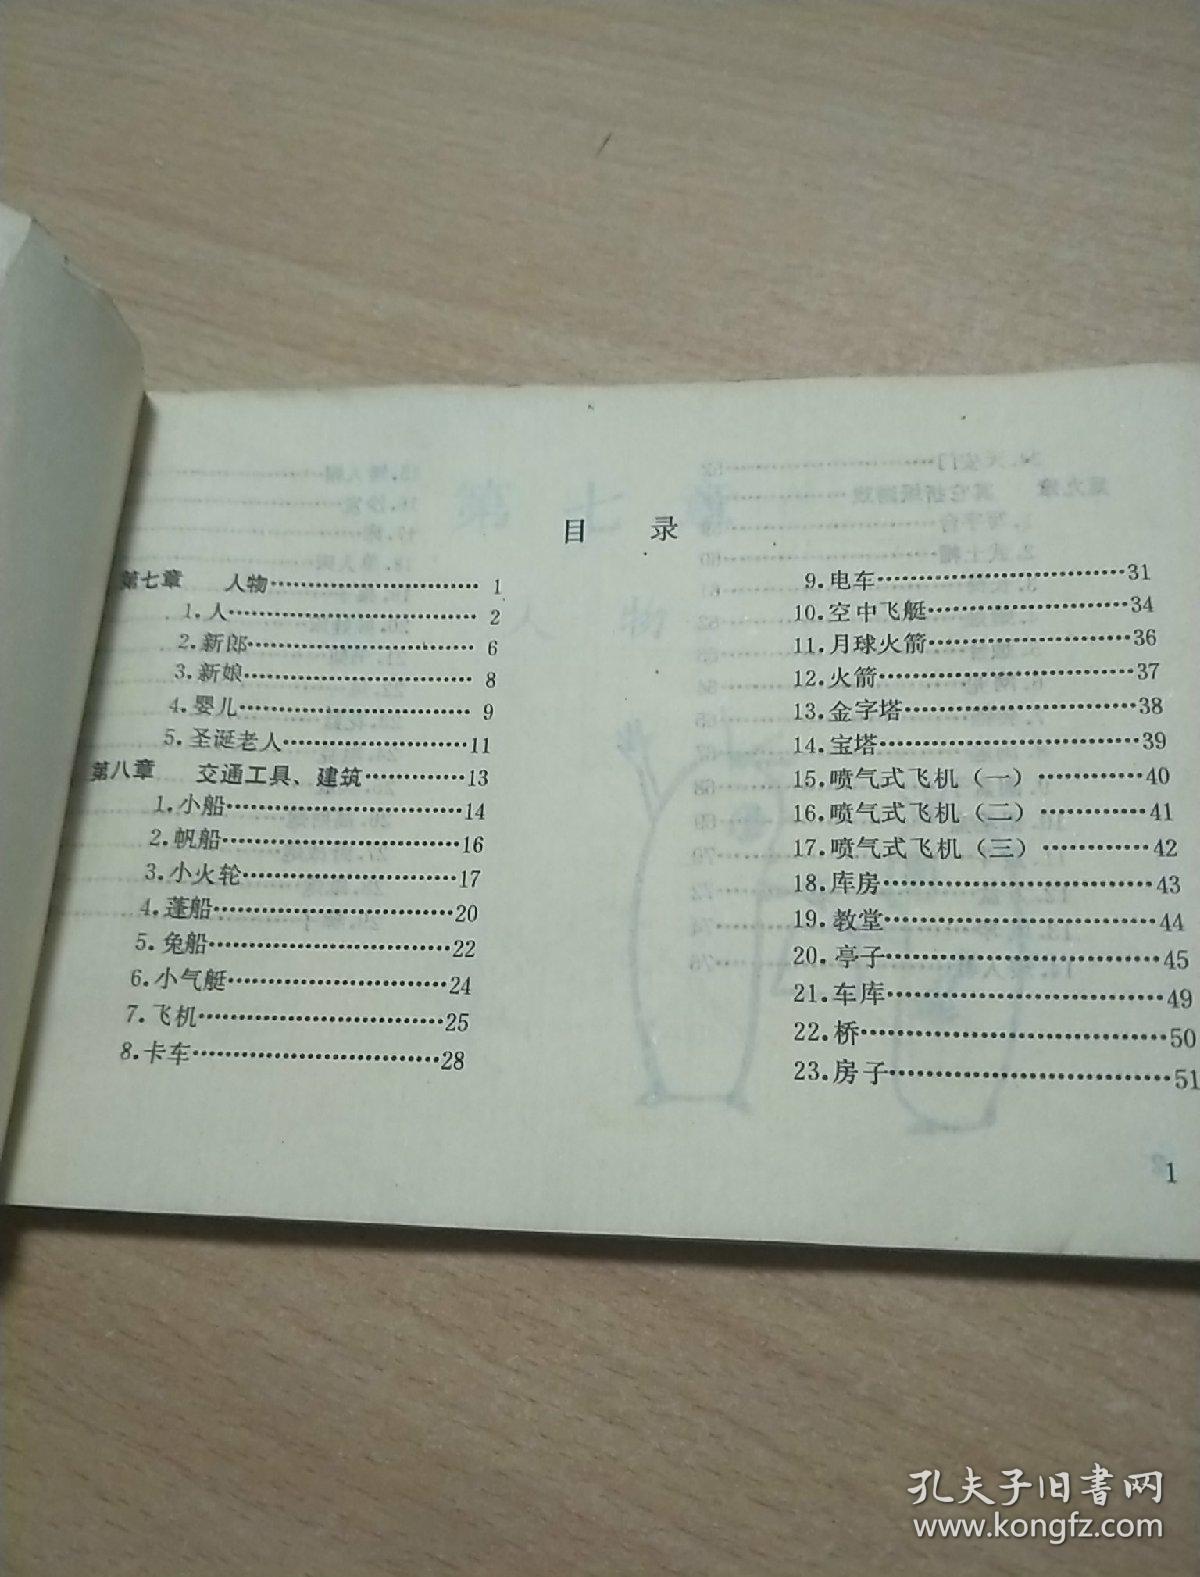 目 录
第七章 人物……………………… 1
1.人……………………… 2
2.新郎……………………… 6
3.新娘……………………… 8
4.婴儿……………………… 9
5.圣诞老人…………………11
第八章 交通工具、建筑…………13
1.小船………………………14
2.帆船………………………16
3.小火轮……………………17
4.蓬船………………………20
5.兔船………………………22
6.小气艇……………………24
7.飞机………………………25
8.卡车………………………28
9.电车………………………31
10.空中飞艇…………………34
11.月球火箭…………………36
12.火箭………………………37
13.金字塔……………………38
14.宝塔………………………39
15.喷气式飞机(一)…………40
16.喷气式飞机(二)…………41
17.喷气式飞机(三)…………42
18.库房………………………43
19.教堂………………………44
20.亭子………………………45
21.车库………………………49
22.桥…………………………50
23.房子………………………51
1
孔夫子旧书网
www.kongfz.com